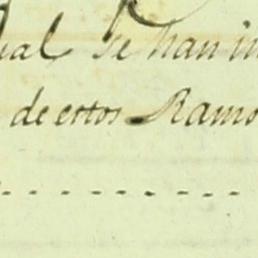 ial se han in
de estos Ramo